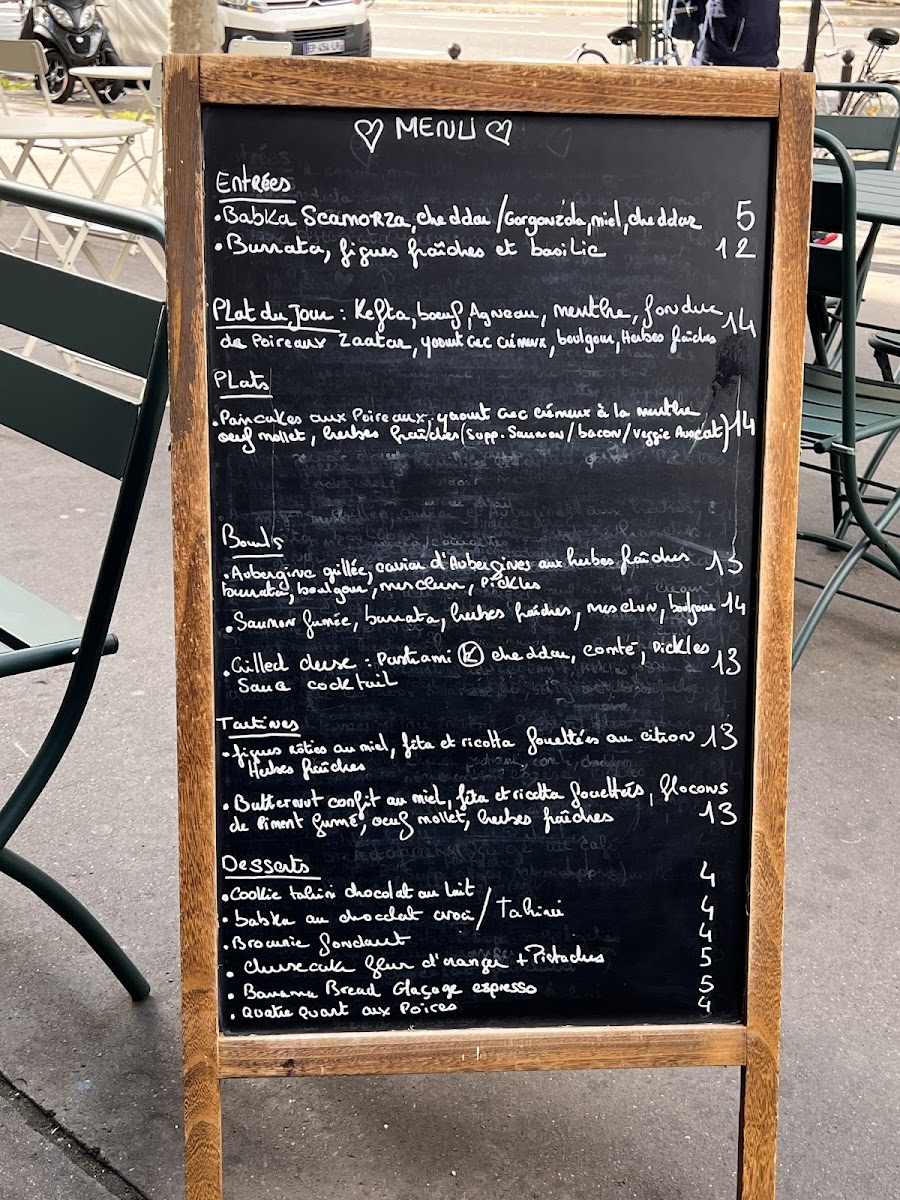 ♡ MENU ♡
Entrées
• Babka Scamorza, cheddar / Gorgonzola, miel, cheddar 5
• Burrata, figues fraîches et basilic 12
Plat du jour : Kefta, boeuf, Agneau, menthe, fondue 14
de Poireaux Zaatar, yaourt Grec crémeux, boulgour, Herbes fraîches
Plats
• Pancakes aux Poireaux, yaourt Grec crémeux à la menthe
oeuf mollet, herbes fraîches (Supp. Saumon / bacon / Veggie Avocat) 14
Bowls
• Aubergine grillée, caviar d'Aubergines aux herbes fraîches 13
burrata, boulgour, mesclun, Pickles
• Saumon fumée, burrata, herbes fraîches, mesclun, boulgour 14
• Grilled cheese : Pastrami Ⓚ cheddar, comté, Pickles 13
Sauce cocktail
Tartines
• figues rôties au miel, fêta et ricotta fouettées au citron 13
Herbes fraîches
• Butternut confit au miel, fêta et ricotta fouettées, flocons
de Piment fumé, oeuf mollet, herbes fraîches 13
Desserts
• Cookie tahini chocolat au lait 4
• babka au chocolat / Tahini 4
• Brownie fondant 4
• Cheesecake fleur d'oranger + Pistaches 5
• Banana Bread Glaçage espresso 5
• Quatre Quart aux Poires 4